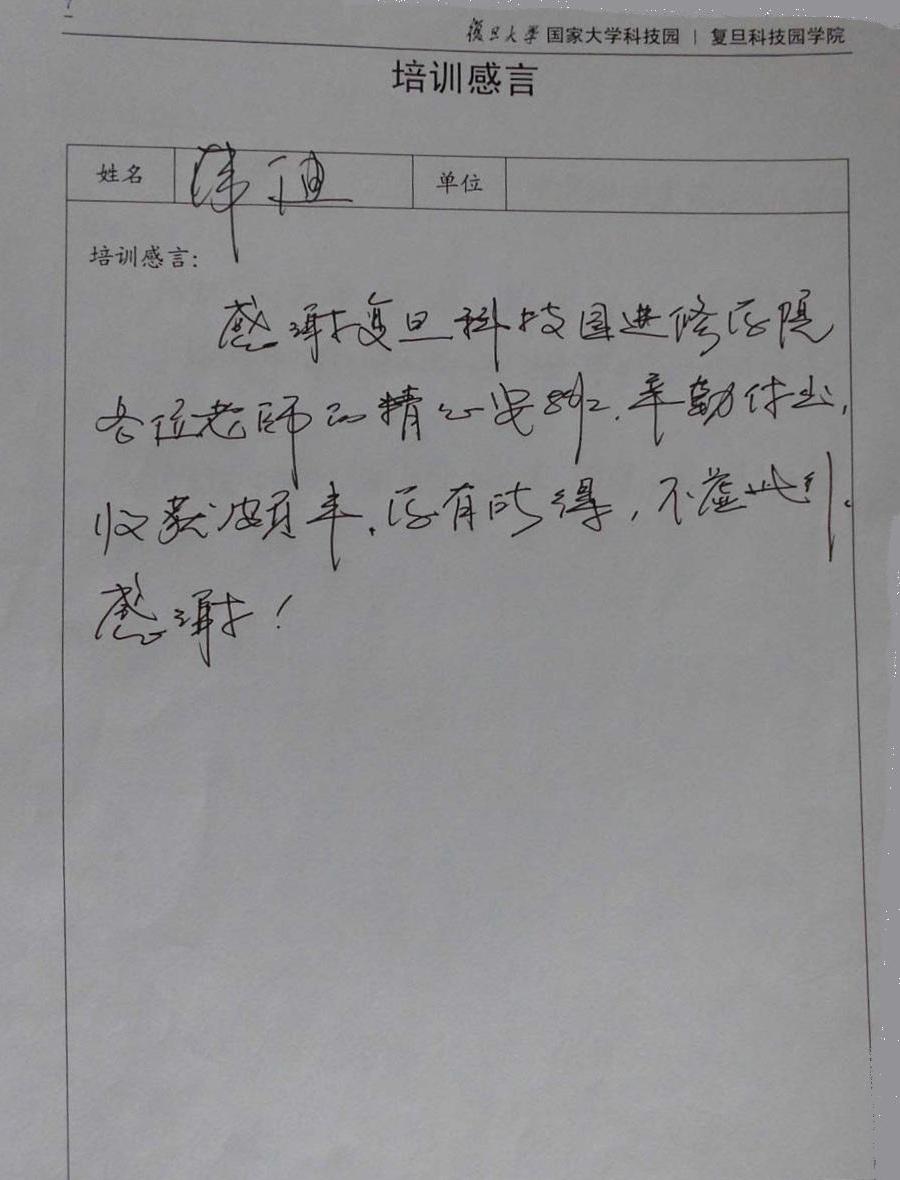 复旦大学国家大学科技园 | 复旦科技园学院
培训感言
姓名 单位
培训感言:
感谢复旦科技园进修学院
各位老师的精心安排、辛勤付出,
收获颇丰,学有所得,不虚此行。
感谢!